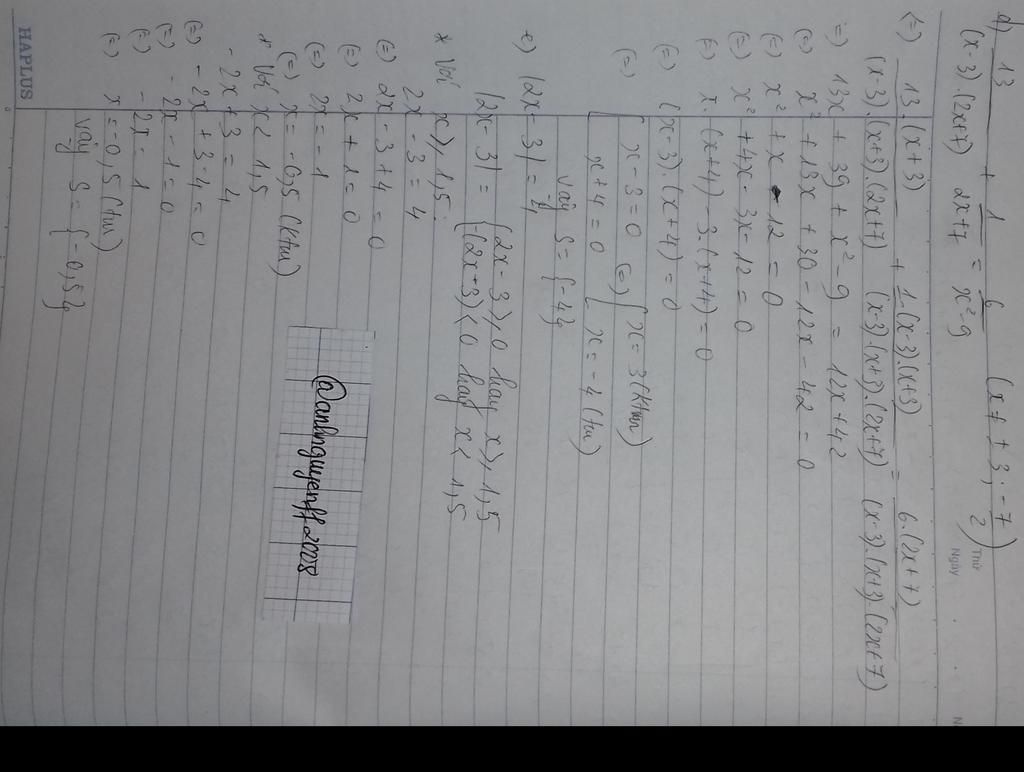 d) 13/((x-3).(2x+7)) + 1/(2x+7) = 6/(x²-9) (x ≠ ±3; -7/2)
(=) 13.(x+3)/((x-3).(x+3).(2x+7)) + 1.(x-3).(x+3)/((x-3).(x+3).(2x+7)) = 6.(2x+7)/((x-3).(x+3).(2x+7))
=) 13x + 39 + x² - 9 = 12x + 42
(=) x² + 13x + 30 - 12x - 42 = 0
(=) x² + x - 12 = 0
(=) x² + 4x - 3x - 12 = 0
(=) x.(x+4) - 3.(x+4) = 0
(=) (x-3).(x+4) = 0
(=) [x-3=0 (=) [x=3 (ktm)
x+4=0 x=-4 (tm)
Vậy S={-4}
e) |2x-3| = -4
|2x-3| = {2x-3 ≥ 0 hay x ≥ 1,5
-(2x-3) < 0 hay x < 1,5
* Với x ≥ 1,5
2x - 3 = 4
(=) 2x - 3 + 4 = 0
(=) 2x + 1 = 0
(=) 2x = -1
(=) x = -0,5 (ktm)
* Với x < 1,5
-2x + 3 = 4
(=) -2x + 3 - 4 = 0
(=) -2x - 1 = 0
(=) -2x = 1
(=) x = -0,5 (tm)
Vậy S = {-0,5}
@anhnguyenff2008
Thứ
Ngày
HAPLUS